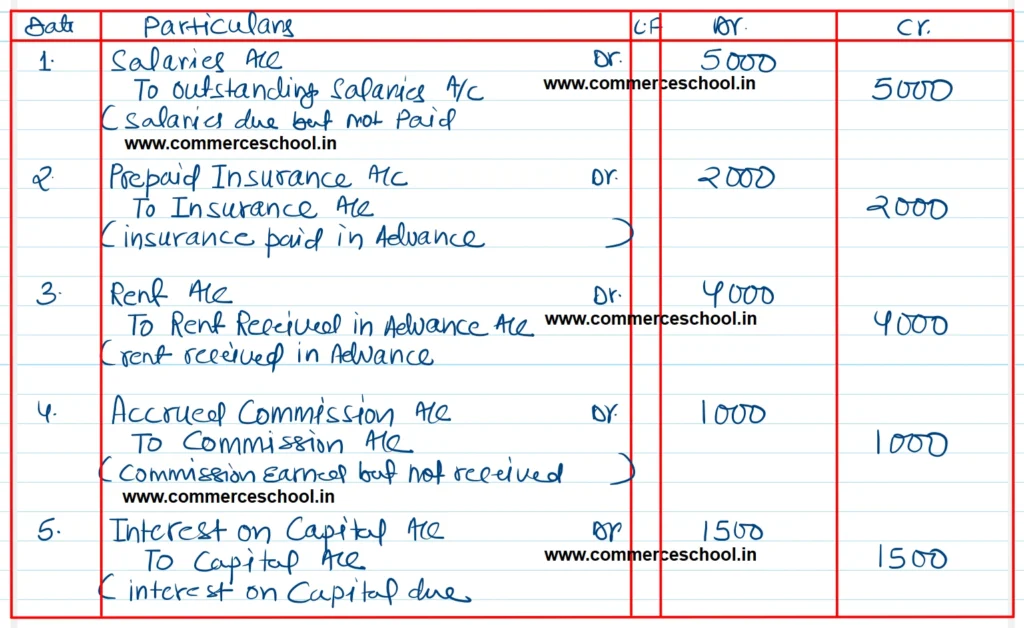 Date Particulars L.F Dr. Cr.
1. Salaries A/c Dr. 5000
To outstanding Salaries A/c 5000
www.commerceschool.in
(Salaries due but not Paid
www.commerceschool.in
2. Prepaid Insurance A/c Dr. 2000
To Insurance A/c 2000
(insurance paid in Advance )
3. Rent A/c Dr. 4000
To Rent Received in Advance A/c 4000
www.commerceschool.in
(rent received in Advance
4. Accrued Commission A/c Dr. 1000
To Commission A/c 1000
(Commission Earned but not received )
www.commerceschool.in
5. Interest on Capital A/c Dr 1500
To Capital A/c 1500
www.commerceschool.in
( interest on Capital due